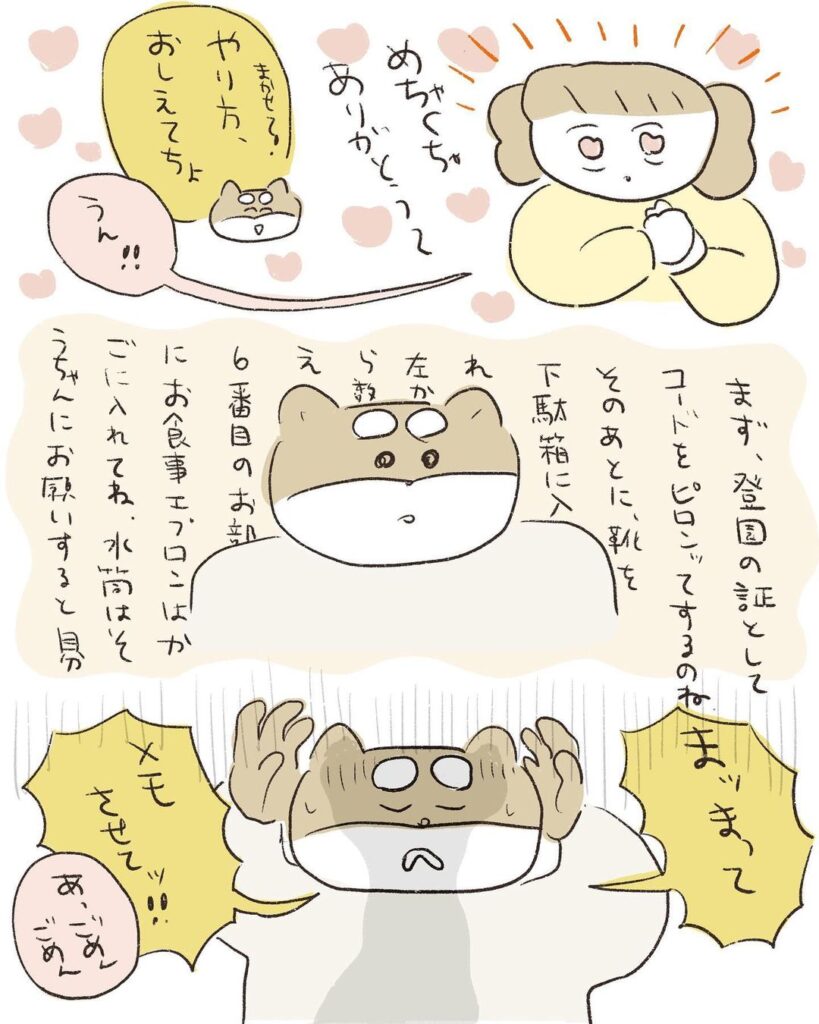 めちゃくちゃ
ありがとうって
まかせろ!
やり方、
おしえてちょ
うん!!
まず、登園の証として
コードをピロンッてするのね
そのあとに、靴を
下駄箱に入
れ
左か
ら数
え
6番目のお部
にお食事エプロンはか
ごに入れてね、水筒はそ
うちゃんにお願いすると自分
まッまって
メモ
させてッ!!
あ、ごめん
ごめん